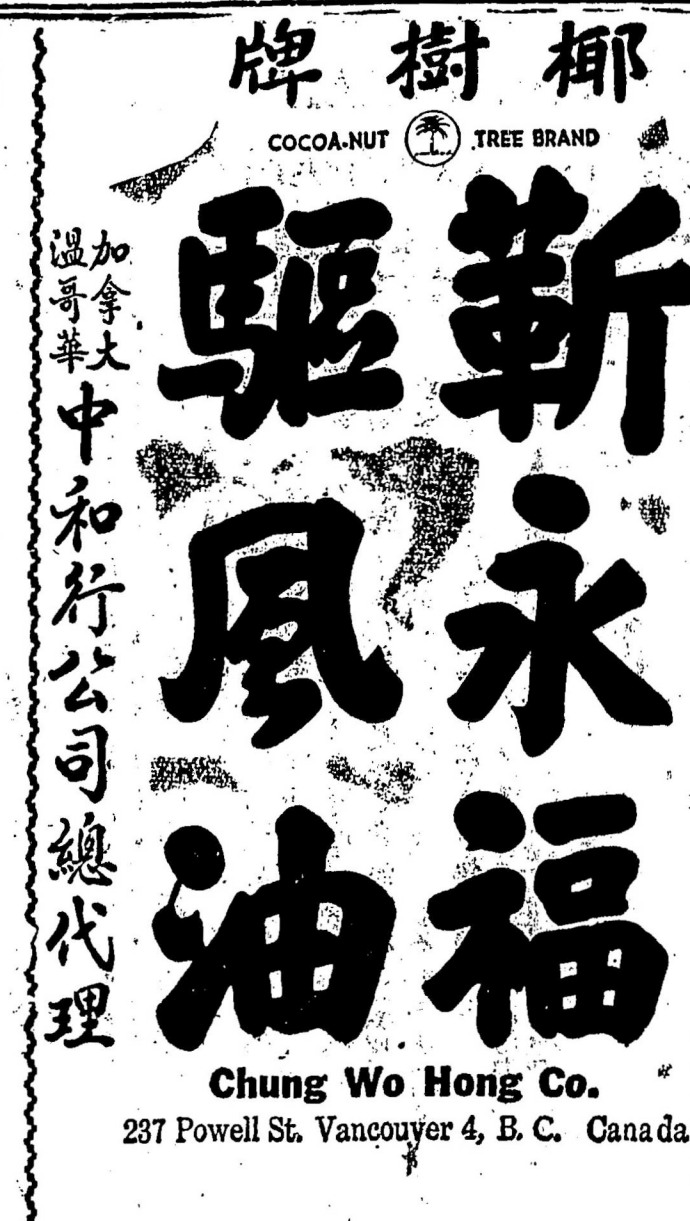 椰樹牌
COCOA-NUT TREE BRAND
靳永福
驅風油
加拿大
溫哥華
中和行公司總代理
Chung Wo Hong Co.
237 Powell St. Vancouver 4, B. C. Canada